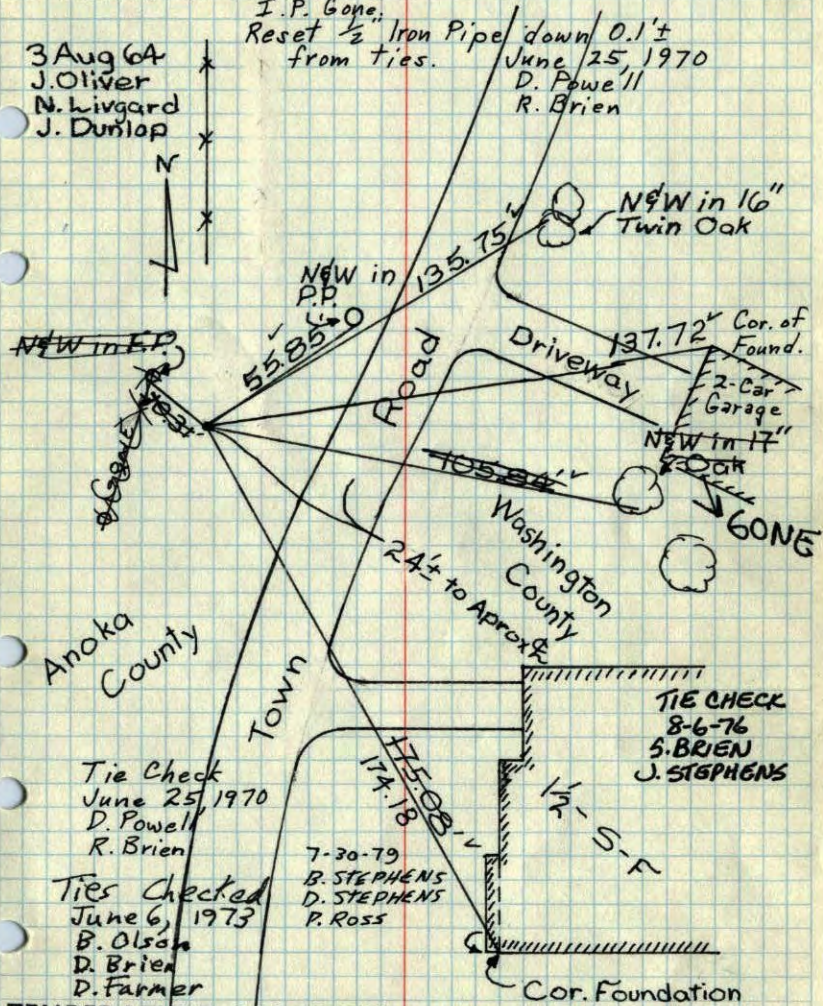 I.P. Gone.
Reset 1/2" Iron Pipe down 0.1'±
from ties.
June 25, 1970
D. Powell
R. Brien
3 Aug 64
J. Oliver
N. Livgard
J. Dunlop
N
N&W in 16"
Twin Oak
N&W in
P.P.
135.75'
55.85'
N&W in F.P.
Gone
137.72'
Cor. of
Found.
Driveway
2-Car
Garage
N&W in 17"
Oak
GONE
105.84'
Road
Washington
County
24'± to Aprox ℄
Anoka
County
Town
TIE CHECK
8-6-76
S. BRIEN
J. STEPHENS
175.08'
174.18
1 1/2 - S - F
Tie Check
June 25, 1970
D. Powell
R. Brien
7-30-79
B. STEPHENS
D. STEPHENS
P. ROSS
Ties Checked
June 6, 1973
B. Olson
D. Brien
D. Farmer
Cor. Foundation